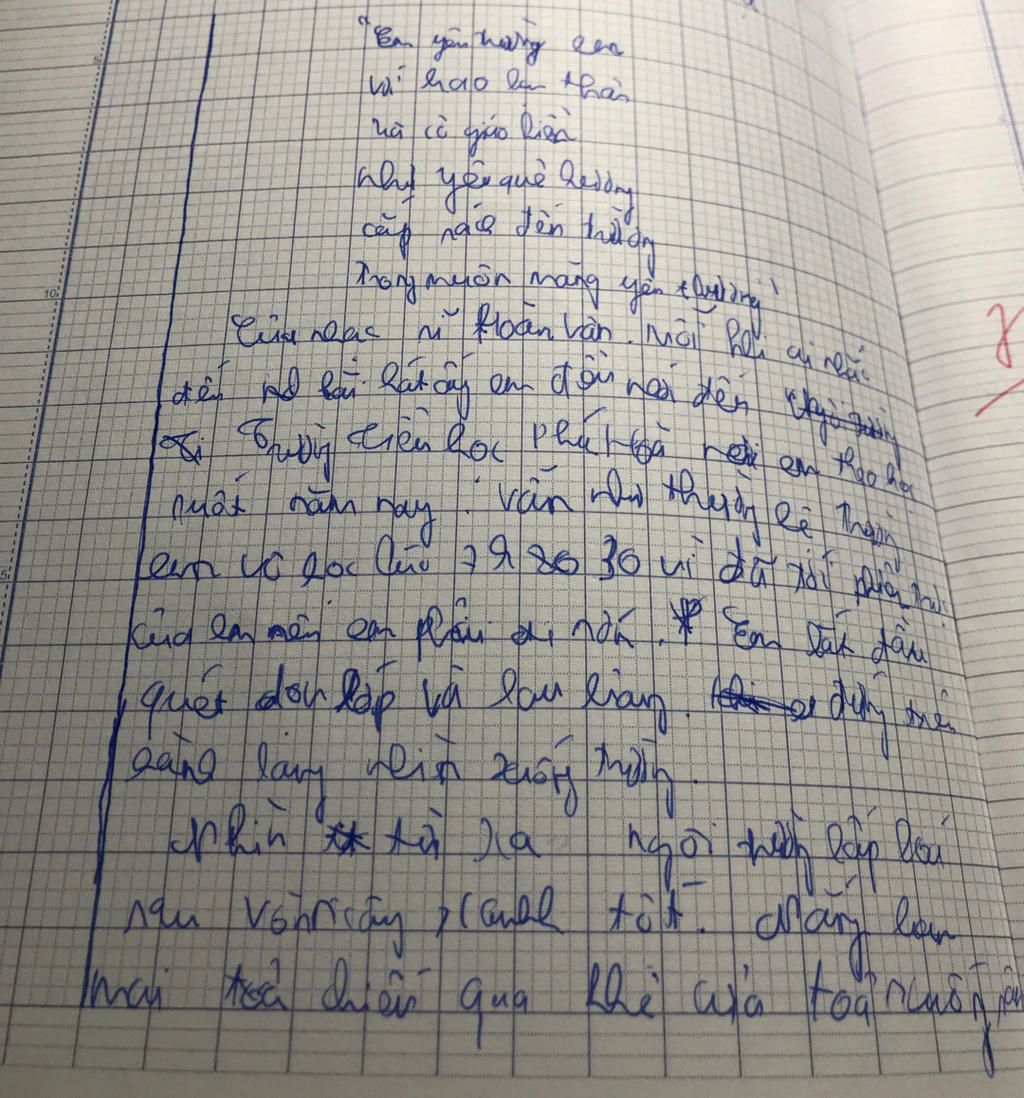 "Em yêu trường em
với bao bạn thân
và cô giáo hiền
như yêu quê hương
cắp sách đến trường
Trong muôn màng yêu thương"
Của nhạc sĩ Hoàn Vân. Mỗi khi ai nhắc
đến bài hát ấy em đều nhớ đến
Trường tiểu học Phú Hoà nơi em theo học
suốt năm nay. vẫn như thường lê Tháng
em vô học lúc 7 30 vì đã tới phiên trực
của em nên em phải đi sớm. Em bắt đầu
quét dọn lớp và lau bảng. đứng trên
hàng lang nhìn xuống trường.
Nhìn từ xa ngôi trường lấp loá
sau vòm cây xanh tốt. Nắng ban
mai toả chiếu qua khẽ lá toả xuống sân
8